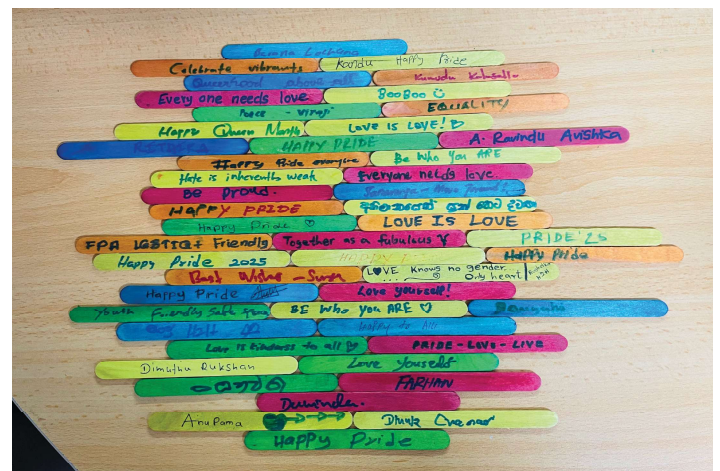 Celebrate vibrants
Kandu Happy Pride
Queerhood above all
Every one needs love
BooBoo
Peace - Viraji
EQUALITY
Happy Queer Month
LOVE IS LOVE!
A. Ravindu Avishka
HAPPY PRIDE
Happy Pride everyone
Be Who You ARE
Hate is inherently weak
Everyone needs love
BE Proud.
HAPPY PRIDE
Happy Pride
LOVE IS LOVE
FPA LGBTIQ+ Friendly
Together as a fabulous
PRIDE'25
Happy Pride 2025
HAPPY
Happy Pride
Best Wishes -
LOVE Knows no gender
Only heart
Happy Pride
Love yourself!
Youth Friendly Safe
BE Who you ARE
Happy to All
Love is kindness to all
PRIDE-LOVE-LIVE
Dimuthu Rukshan
Love Youself
FARHAN
Duwinda.
Anupama
Happy Pride